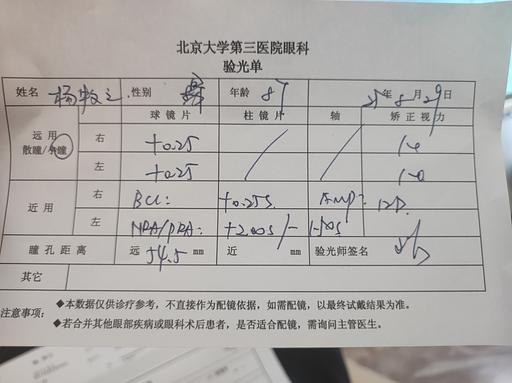 北京大学第三医院眼科
验光单
姓名 杨牧之 性别 男 年龄 8岁 25年8月29日
球镜片 柱镜片 轴 矫正视力
远用 散瞳/小瞳 右 +0.25 / / 1.0
左 +0.25 / / 1.0
近用 右 BCC: +0.25S AMP: 12D.
左 NRA/PRA: +2.00S/-
瞳孔距离 远 54.5 mm 近 mm 验光师签名
其它
注意事项: ◆本数据仅供诊疗参考，不直接作为配镜依据，如需配镜，以最终试戴结果为准。
◆若合并其他眼部疾病或眼科术后患者，是否适合配镜，需询问主管医生。